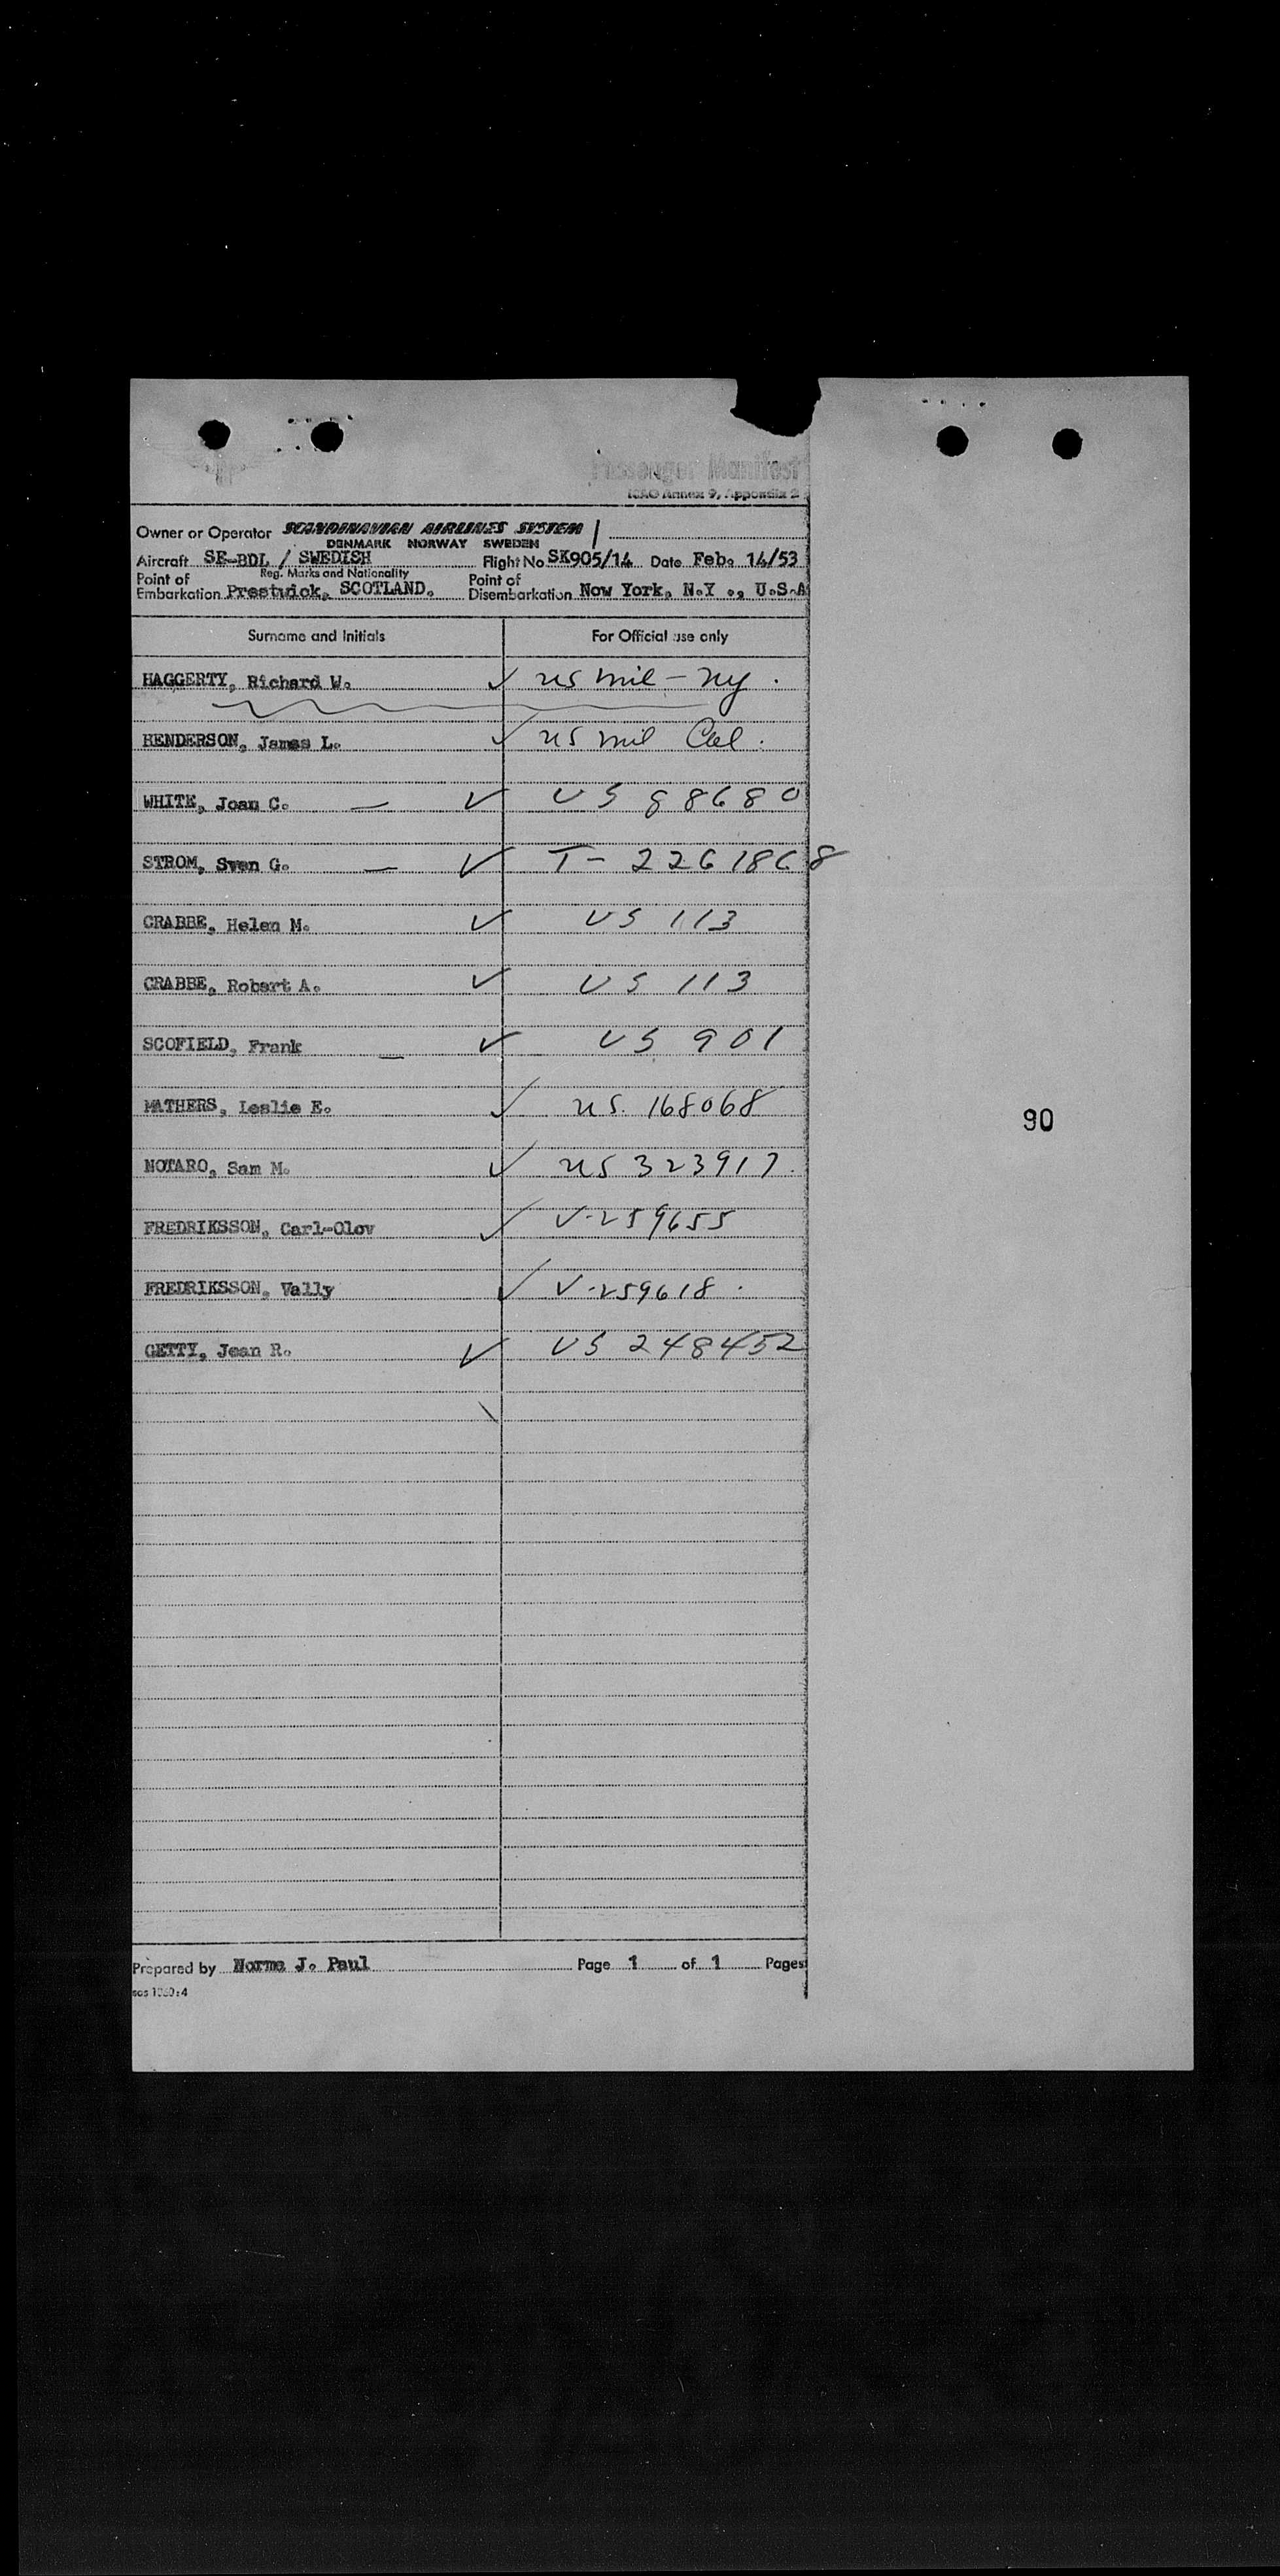 Passenger Manifest
ICAO Annex 9, Appendix 2
Owner or Operator SCANDINAVIAN AIRLINES SYSTEM
DENMARK NORWAY SWEDEN
Aircraft SE-BDL / SWEDISH Flight No SK905/14 Date Feb. 14/53
Reg. Marks and Nationality
Point of Embarkation Prestwick, SCOTLAND. Point of Disembarkation New York, N.Y ., U.S.A
Surname and Initials For Official use only
HAGGERTY, Richard W. ✓ US mil - NY.
HENDERSON, James L. ✓ US mil Cal.
WHITE, Joan C. — ✓ US 88680
STROM, Sven G. — ✓ T- 2261868
CRABBE, Helen M. ✓ US 113
CRABBE, Robert A. ✓ US 113
SCOFIELD, Frank — ✓ US 901
MATHERS, Leslie E. ✓ US. 168068
90
NOTARO, Sam M. ✓ US 323917.
FREDRIKSSON, Carl-Olov ✓ V-259655
FREDRIKSSON, Vally ✓ V-259618.
GETTY, Jean R. ✓ US 248452
Prepared by Norma J. Paul Page 1 of 1 Pages